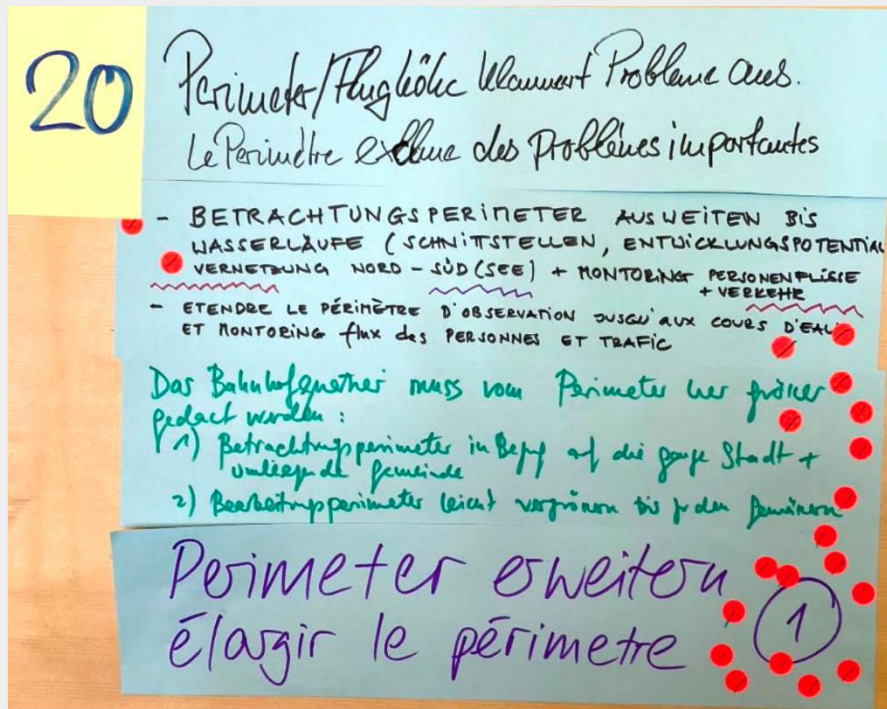 20
Perimeter/Flughöhe klammert Probleme aus.
Le Perimètre exclue des problèmes importantes
- BETRACHTUNGSPERIMETER AUSWEITEN BIS
WASSERLÄUFE (SCHNITTSTELLEN, ENTWICKLUNGSPOTENTIAL
VERNETZUNG NORD - SÜD (SEE) + MONTORING PERSONENFLÜSSE
+ VERKEHR
- ETENDRE LE PÉRIMÈTRE D'OBSERVATION JUSQU'AUX COURS D'EAU
ET MONTORING flux des PERSONNES ET TRAFIC
Das Bahnhofquartier muss vom Perimeter her grösser
gedacht werden :
1) Betrachtungsperimeter in Bezug auf die ganze Stadt +
umliegende Gemeinde
2) Bearbeitungsperimeter leicht vergrössern bis zu den
Perimeter erweitern
élargir le périmetre
1